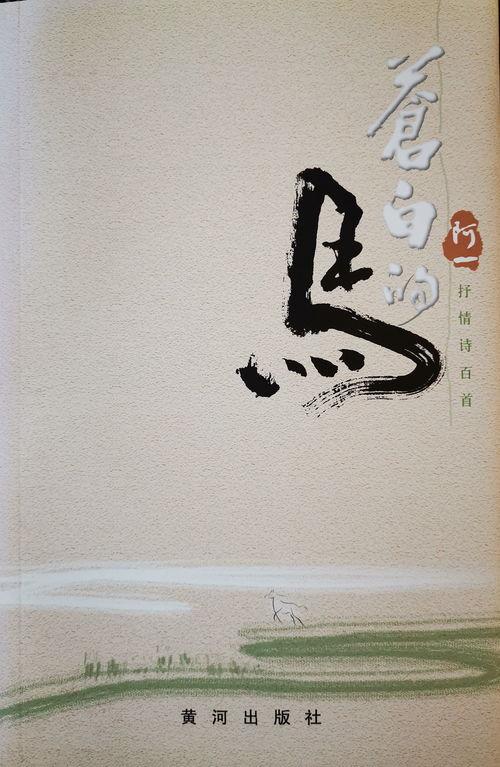 蒼白的
馬
阿一
抒情诗百首
黄河出版社